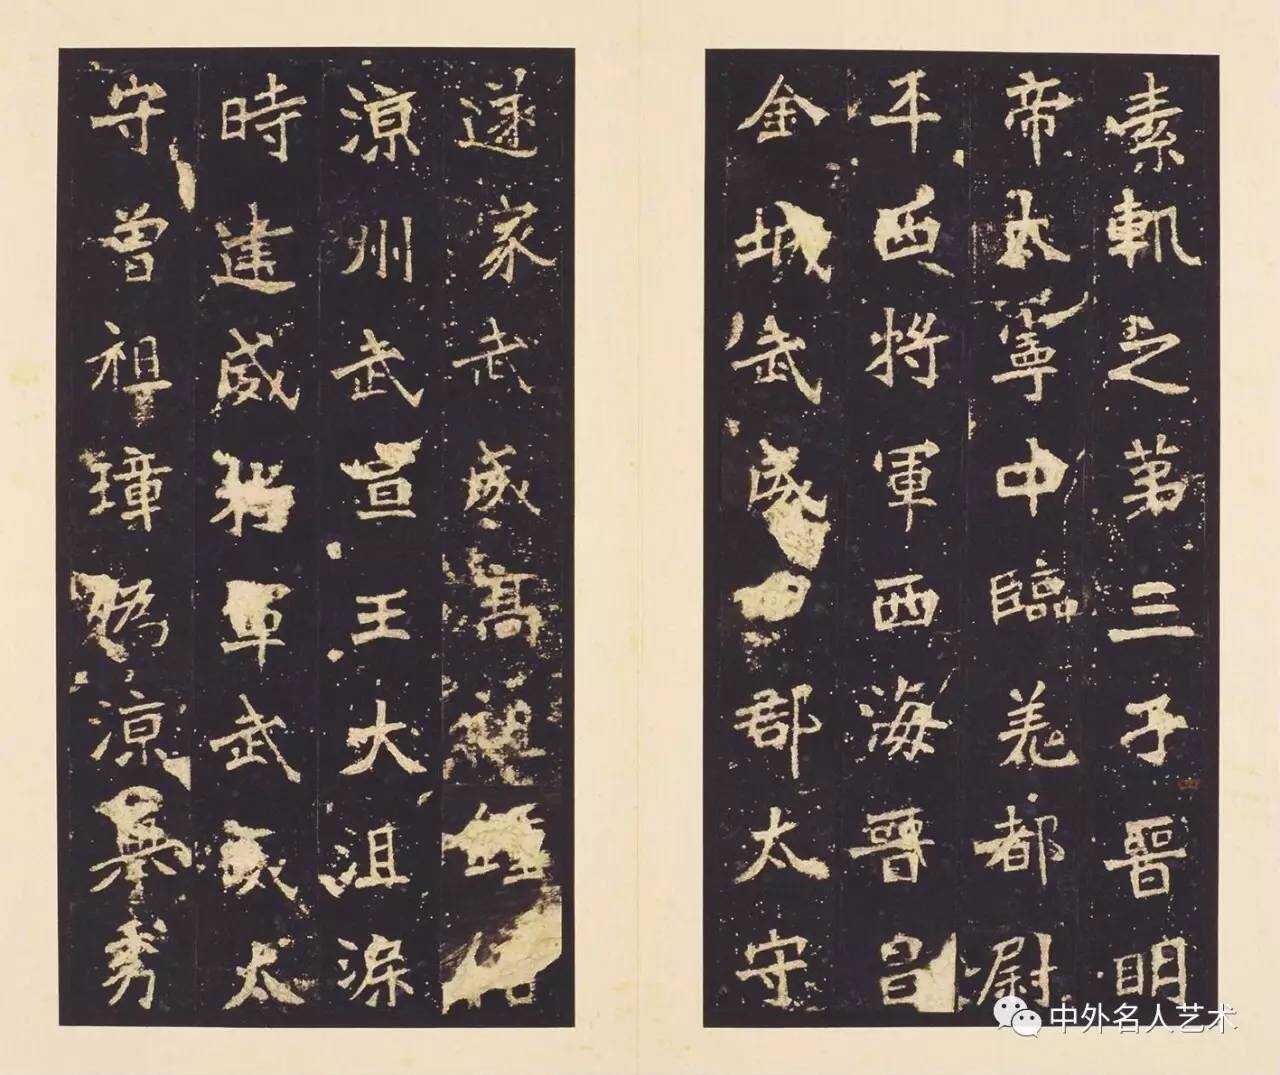 素軌之第三子晉明
帝太寧中臨羌都尉
平西將軍西海晉昌
金城武威四郡太守
遂家武威高祖鍾
涼州武宣王大沮渠
時建威將軍武威太
守曾祖璋偽涼舉秀
中外名人艺术